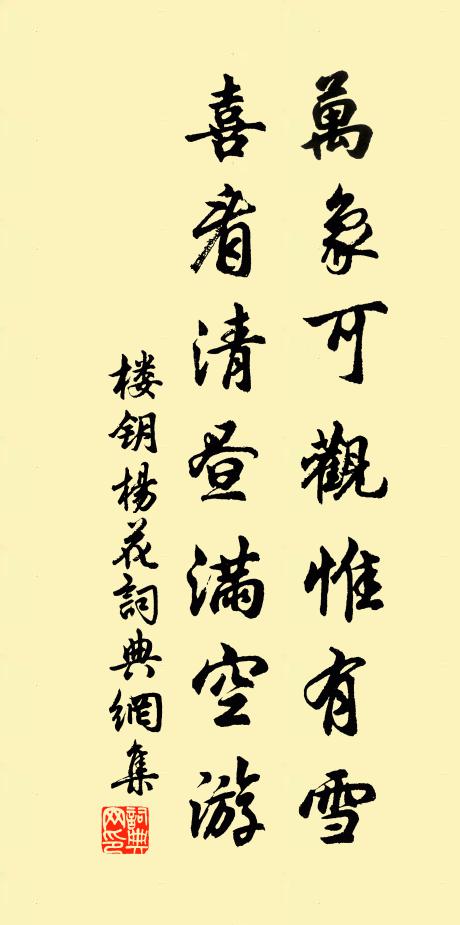 萬象可觀惟有雪
喜看清昼滿空游
楼钥楊花詞典網集
詞典網印